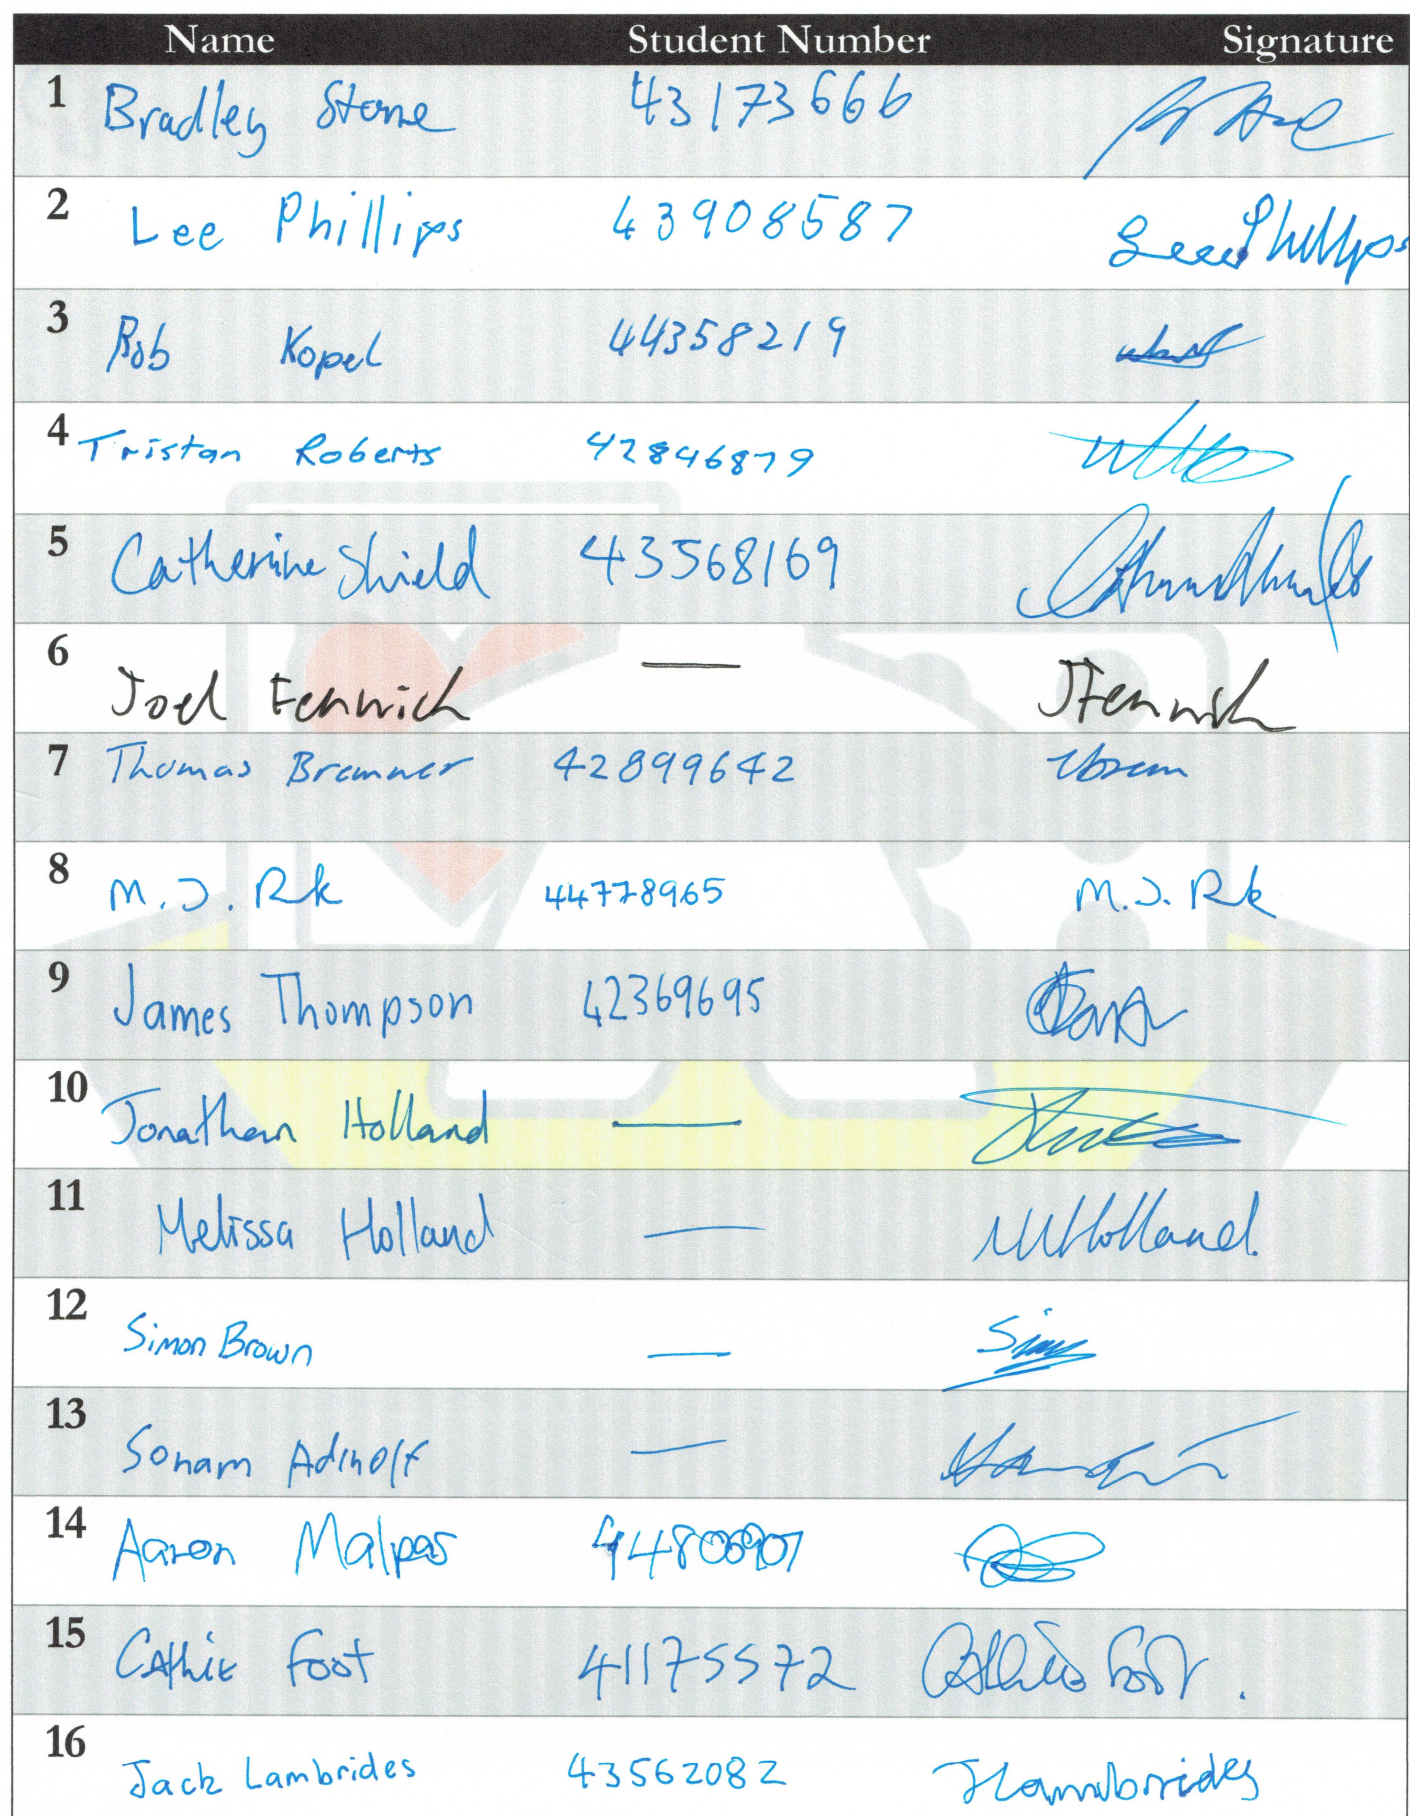 Name Student Number Signature
1 Bradley Stone 43173666
2 Lee Phillips 43908587 Lee Phillips
3 Rob Kopel 44358219
4 Tristan Roberts 42846879
5 Catherine Shield 43568169
6 Joel Fenwich — JFenwich
7 Thomas Bremner 42899642
8 M.J. Rk 44778965 M.J. Rk
9 James Thompson 42369695
10 Jonathan Holland —
11 Melissa Holland — MHolland.
12 Simon Brown —
13 Sonam Adinolf —
14 Aaron Malpas
15 Cathie Foot 41175572 Cathie Foot.
16 Jack Lambrides 43562082 JLambrides